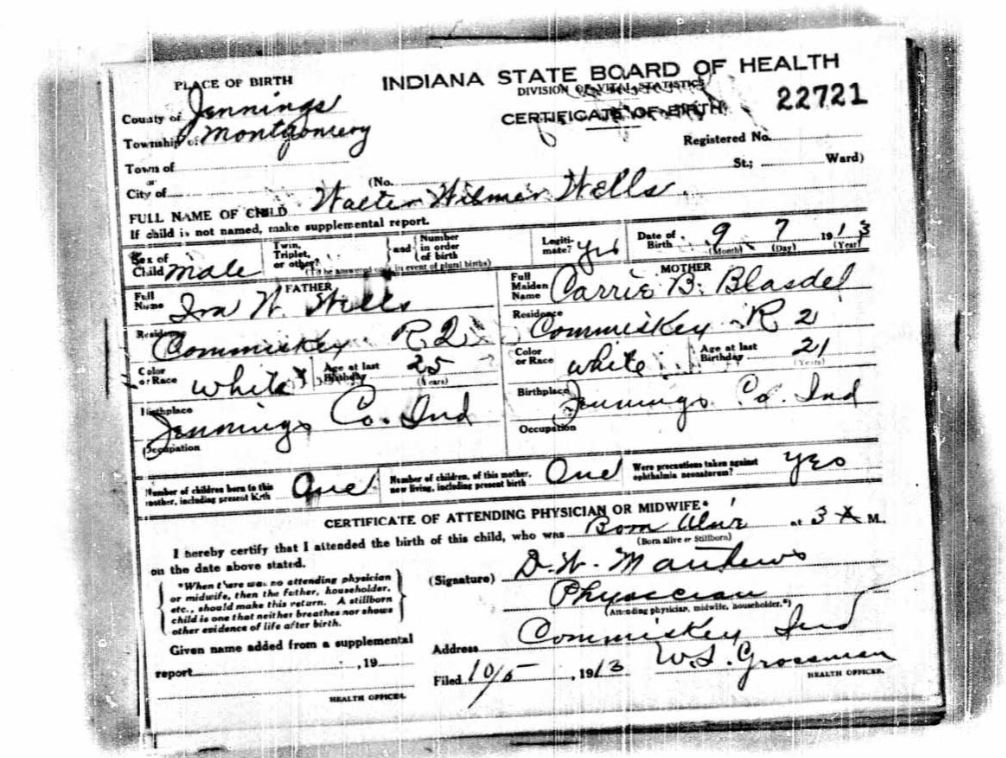 PLACE OF BIRTH
INDIANA STATE BOARD OF HEALTH
DIVISION OF VITAL STATISTICS
CERTIFICATE OF BIRTH
22721
County of Jennings
Township of Montgomery
Registered No.
Town of
or
City of (No. St.; Ward)
FULL NAME OF CHILD Walter Wilmer Wells
If child is not named, make supplemental report.
Sex of Child male
Twin, Triplet, or other?
and
Number in order of birth
(To be answered only in event of plural births)
Legitimate? yes
Date of Birth 9 7 1913
(Month) (Day) (Year)
FATHER
Full Name Ira W. Wells
Residence Commiskey R 2
Color or Race white
Age at last Birthday 25
(Years)
Birthplace Jennings Co. Ind
Occupation
MOTHER
Full Maiden Name Carrie B. Blasdel
Residence Commiskey R 2
Color or Race white
Age at last Birthday 21
(Years)
Birthplace Jennings Co. Ind
Occupation
Number of children born to this mother, including present birth One
Number of children, of this mother, now living, including present birth One
Were precautions taken against ophthalmia neonatorum? yes
CERTIFICATE OF ATTENDING PHYSICIAN OR MIDWIFE*
I hereby certify that I attended the birth of this child, who was Born Alive at 3 A M.
(Born alive or Stillborn)
on the date above stated.
*When there was no attending physician
or midwife, then the father, householder,
etc., should make this return. A stillborn
child is one that neither breathes nor shows
other evidence of life after birth.
(Signature) D. W. Matthews
Physician
(Attending physician, midwife, householder.*)
Given name added from a supplemental
report , 19
HEALTH OFFICER.
Address Commiskey Ind
Filed 10/5, 1913 W.S. Grossman
HEALTH OFFICER.